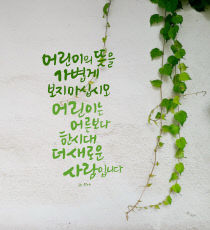 어린이의 뜻을
가볍게
보지마십시오
어린이는
어른보다
한시대
더새로운
사람입니다